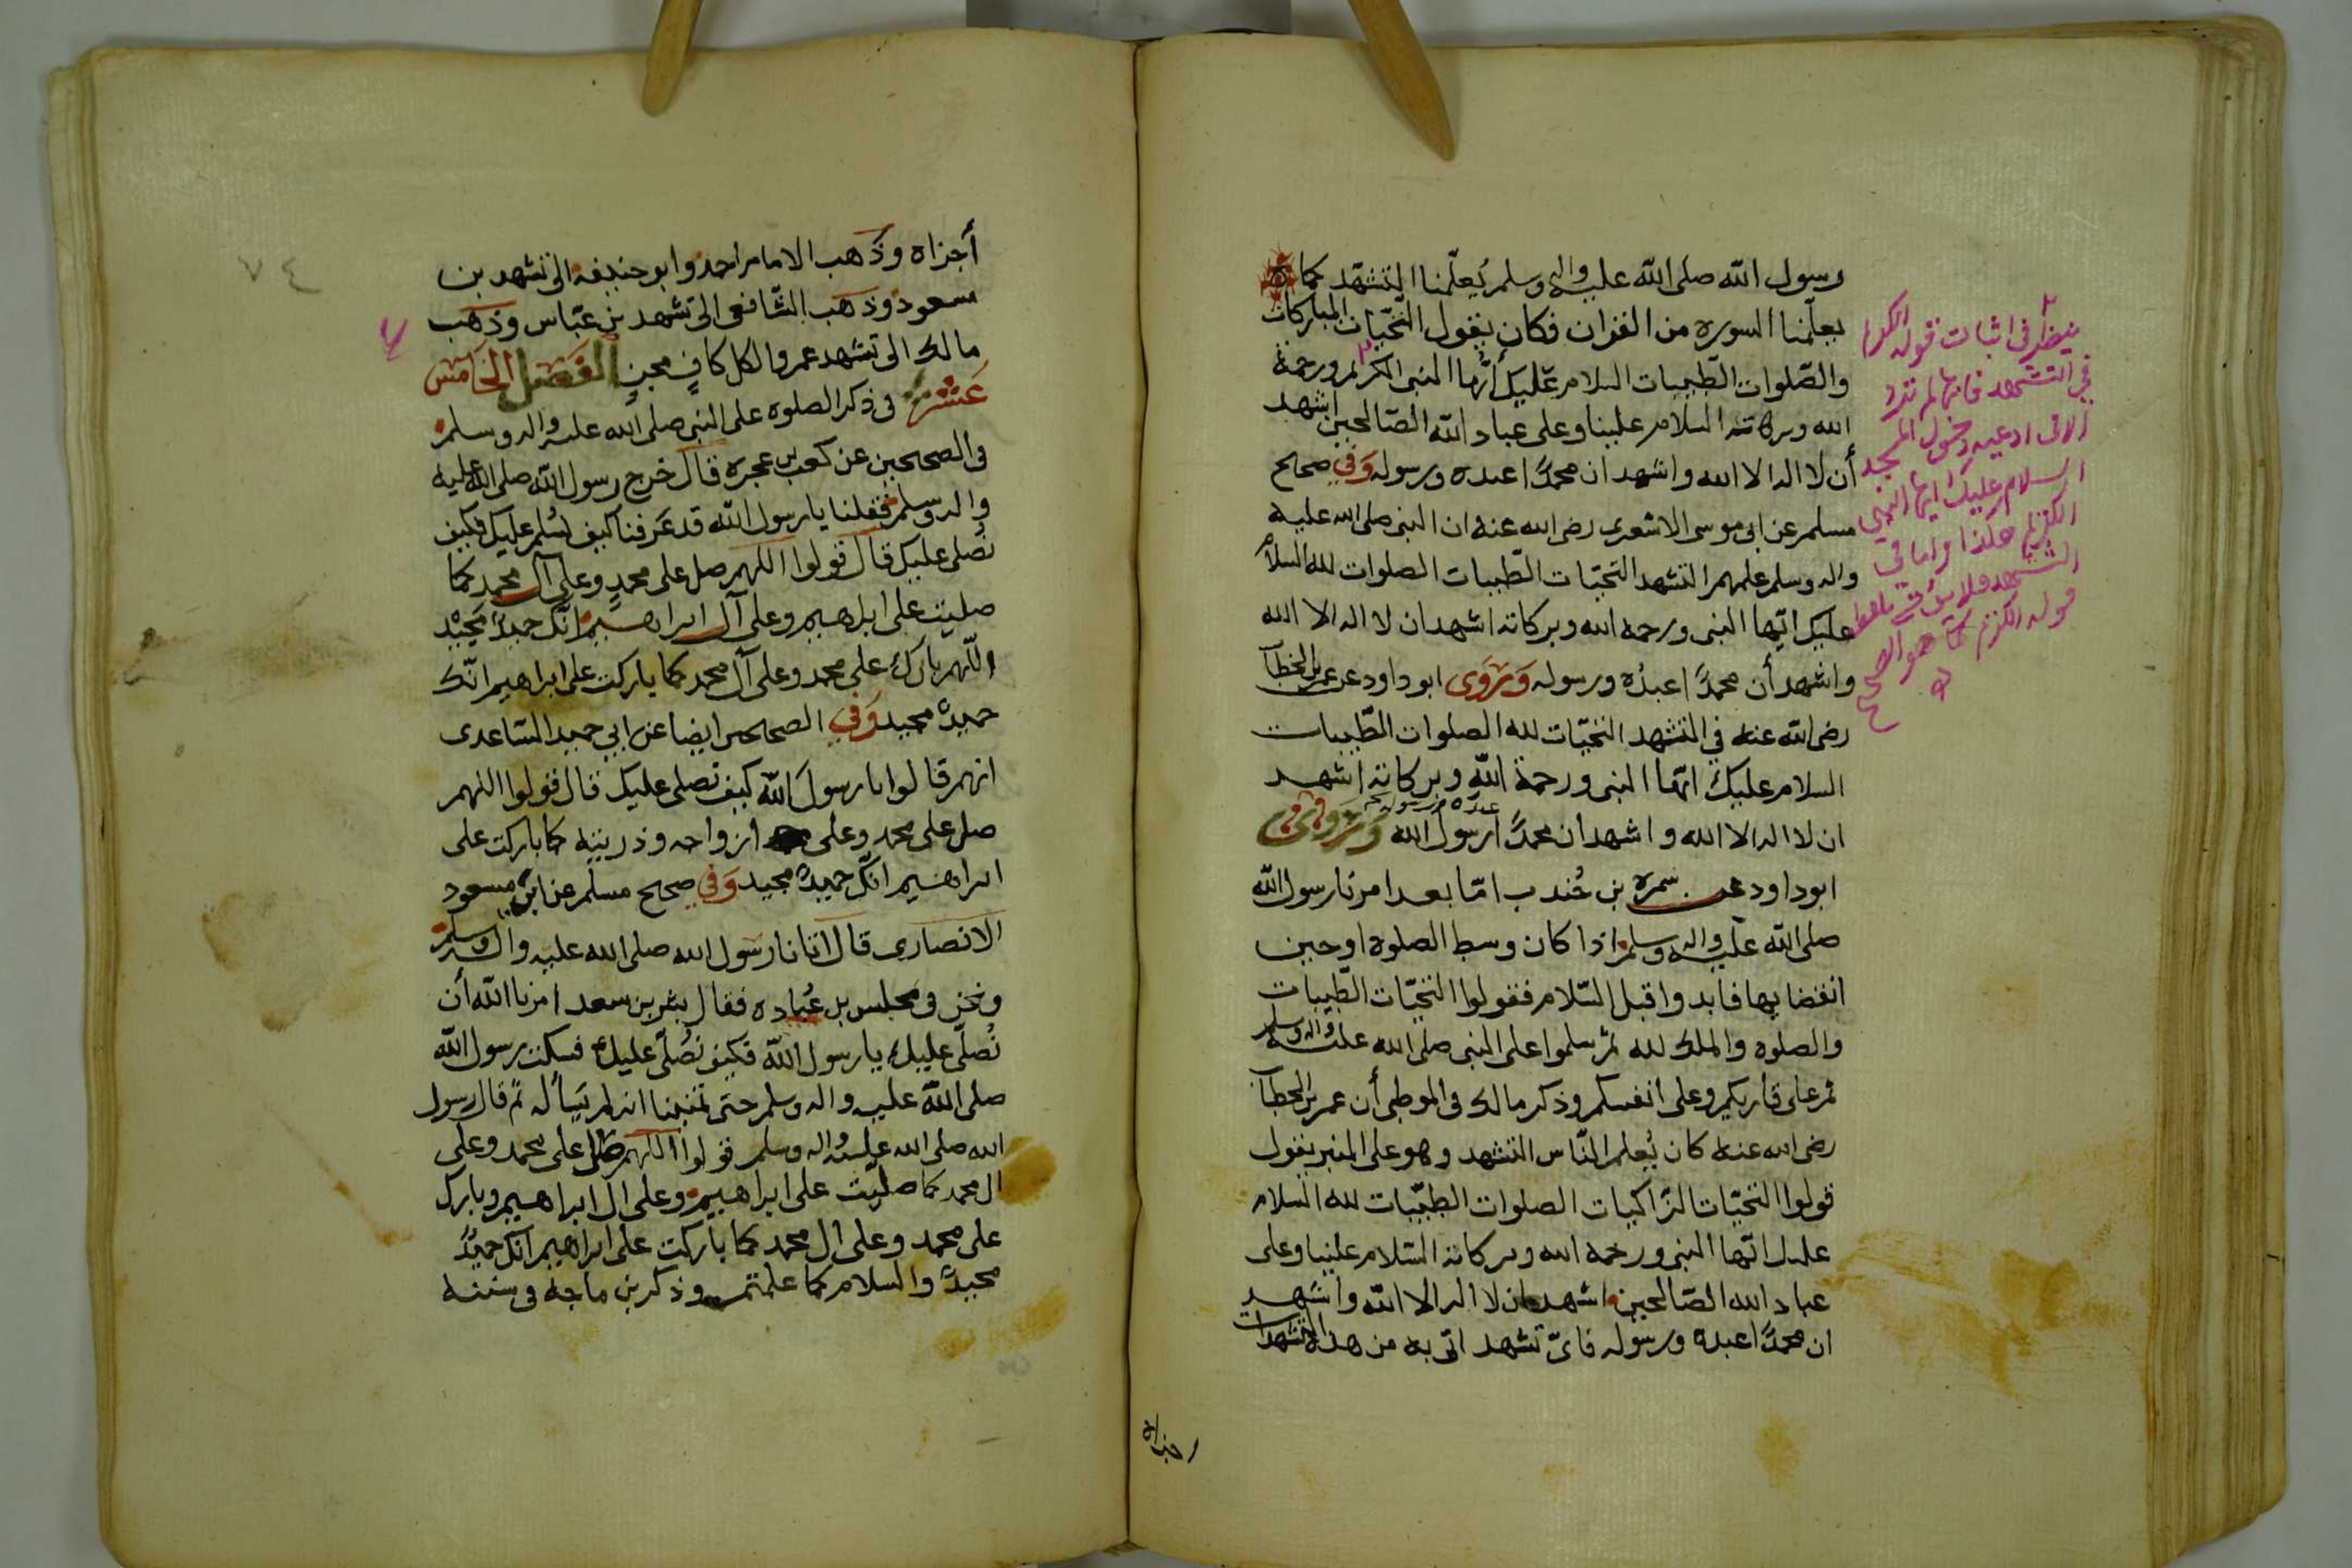 رسول الله صلى الله عليه واله وسلم يُعلّمنا التشهّد كما
يعلّمنا السوره من القران فكان يقول التحّيات المباركات
والصّلوات الطيبات السلام عليك أيُّها النبى الكريم ورحمة
الله وبركاته السلام علينا وعلى عباد الله الصّالحين اشهد
أن لا اله الا الله واشهد ان محمدًا عبده ورسوله وَفي صحيح
مسلم عن ابى موسى الاشعرى رضى الله عنه ان النبى صلى الله عليه
واله وسلم علمهم التشهد التحيّات الطّيبات الصلوات لله السلام
عليك ايّها النبى ورحمه الله وبركاته اشهد ان لا اله الا الله
واشهد أن محمدًا عبدُه ورسوله وَرَوَى ابو داود عن عمر بن الخطاب
رضى الله عنه في التشهد التحيّات لله الصلوات الطّيبات
السلام عليك ايّها النبى ورحمة الله وبركاته اشهد
ان لا اله الا الله واشهد ان محمدًا رسول الله وَرَوَى
عبده ورسوله
ابو داود عن سمره بن جُندب امّا بعد امرنا رسول الله
صلى الله عليه واله وسلم اذا كان وسط الصلوه او حين
انقضايها فابدوا قبل السّلام فقولوا التحيّات الطّيبات
والصلوه والملك لله ثم سلموا على النبى صلى الله عليه واله وسلم
ثم على قاريكم وعلى انفسكم وذكر مالك فى الموطى أن عمر بن الخطاب
رضى الله عنه كان يُعلم النّاس التشهد وهو على المنبر يقول
قولوا التحيّات الزّاكيات الصلوات الطيّبات لله السلام
عليك ايّها النبى ورحمه الله وبركاته السّلام علينا وعلى
عباد الله الصّالحين اشهد ان لا اله الا الله واشهد
ان محمدًا عبده ورسوله فاىّ تشهد اتى به من هذه التشهدات
اجزاه
ينظر فى اثبات قوله الكريم
في التشهد فانها لم ترد
الا فى ادعيه دخول المسجد
السلام عليك ايها النبي
الكريم هكذا واما فى
التشهد فلا
قوله الكريم كما هو الاصح
٧٤
أجزاه وذَهب الامام احمد وابو حنيفه الى تشهد بن
مسعود وذهب الشّافعى الى تشهد بن عبّاس وذهب
مالك الى تشهد عمر والكل كافٍ مجزٍ الفَصل الخَامَس
عَشَر فى ذكر الصلوه على النبى صلى الله عليه واله وسلم
فى الصحيحين عن كعب بن عجره قال خرج رسول الله صلى الله عليه
واله وسلم فقلنا يا رسول الله قد عَرفنا كيف نُسلم عليك فكيف
نُصلى عليك قال قولوا اللهم صل على محمدٍ وعلى آل محمد كما
صليت على ابراهيم وعلى آل ابراهيم انّك حميدٌ مَجيْد
اللّهم بارك على محمد وعلى آل محمد كما باركت على ابراهيم انّك
حميدٌ مجيد وَفي الصحيحين ايضا عن ابي حميد السّاعدى
انهم قالوا يا رسول الله كيف نصلى عليك قال قولوا اللهم
صل على محمد وعلى ازواجه وذريته كما باركت على
ابراهيم انّك حميدٌ مجيد وَفي صحيح مسلم عن ابى مسعود
الانصارى قال اتانا رسول الله صلى الله عليه واله وسلم
ونحن فى مجلس بن عُباده فقال بشر بن سعد امرنا الله أن
نُصلّى عليك يا رسول الله فكيف نُصلّى عليك فسكت رسول الله
صلى الله عليه واله وسلم حتى تمنينا انه لم يَسأله ثم قال رسول
الله صلى الله عليه واله وسلم قولوا اللهم صل على محمد وعلى
ال محمد كما صليّت على ابراهيم وعلى ال ابراهيم وبارك
على محمد وعلى ال محمد كما باركت على ابراهيم انّك حميدٌ
مجيدٌ والسلام كما علمتم وذكر بن ماجه فى سننه